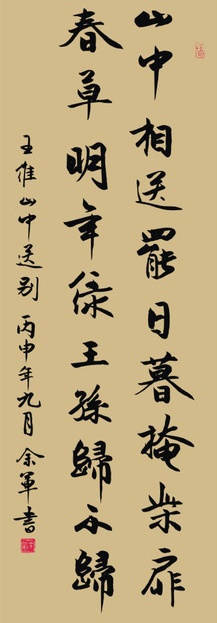 山中相送罷日暮掩柴扉
春草明年綠王孫歸不歸
王維山中送別 丙申年九月 余軍書